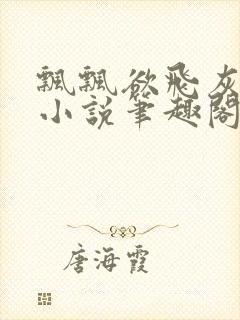 飄飄欲飛灰
小說筆趣閣
唐海霞